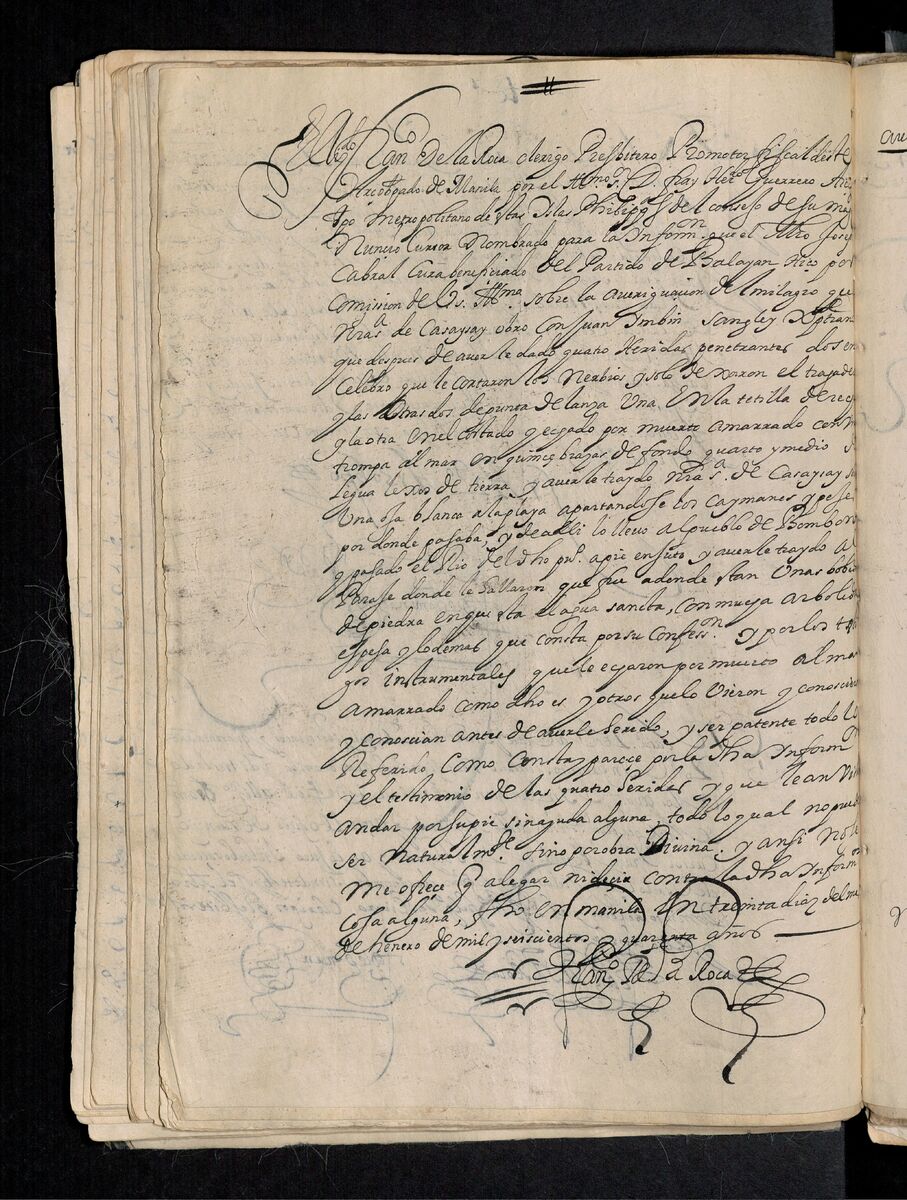 El Lido franco De la Roca clerigo Presbitero Promotor fiscal deste
Arcobpado de Manila por el Illmo Sr. D. fray Herdo Guerrero
Metropolitano de stas Islas Philippas del consejo de su
Nuncio Cursor Nombrado para la Informon que el Mro Josep
Cabral Cura beneficiado del Partido de Balayan hiço por
Comision de Us. Illma sobre la averiguacion del milagro que
Nra sa de Casaysay obro con Juan Ymbin Sangley
que despues de averle dado quatro Heridas penetrantes dos en
Celebro que le cortaron los nerbios y solo dexaron el tragade
y las otras dos de punta de lanza Una, En la tetilla derec
y la otra en el costado y echado por muerto amarrado con
trompa al mar en quince braças de fondo quarto y medio
Legua lexos de tierra y averle traydo Nra sa. de Casaysay
Una osa blanca a la playa apartandose los caymanes y pese
por donde pasaba, y de alli lo llevo al pueblo de Bombon
y pasado el Rio del dho pu. a pie enjuto, y averle traydo al
Parasse donde le hallaron que fue adonde stan Unas
de piedra en que sta el agua sancta, con mucha arboled
espesa y lo demas que consta por su Confesson. y por los
gos instrumentales que le echaron por muerto al ma
amarrado como dho es y otros que lo Vieron y conoscie
y conoscian antes de averle herido, y ser patente todo lo
Referido Como Consta y pareçe por la dha Inform
y el testimonio de las quatro heridas y que le an Vi
andar por su pie sin ayuda alguna, todo lo qual no pue
ser naturalmte. sino por obra Divina. y ansi no
me ofreçe q alegar ni decir contra la dha Inform
cosa alguna, fho en manila En treinta dias del me
de henero de mil y seiscientos y quarenta años
Franco De la Roca